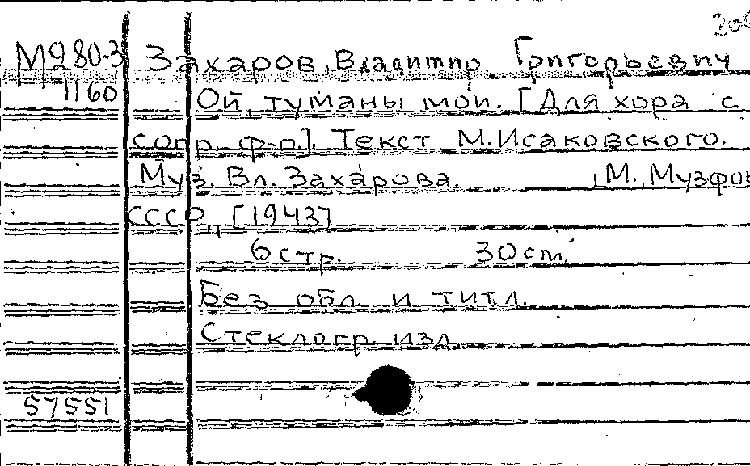 М980-3 Захаров, Владимир Григорьевич
1160 Ой, туманы мои. [Для хора с
сопр. ф-п.]. Текст М.Исаковского.
Муз. Вл. Захарова. М. Музфон
СССР, [1943]
6 стр. 30 cm.
Без обл. и титл.
Стеклогр. изд.
57551